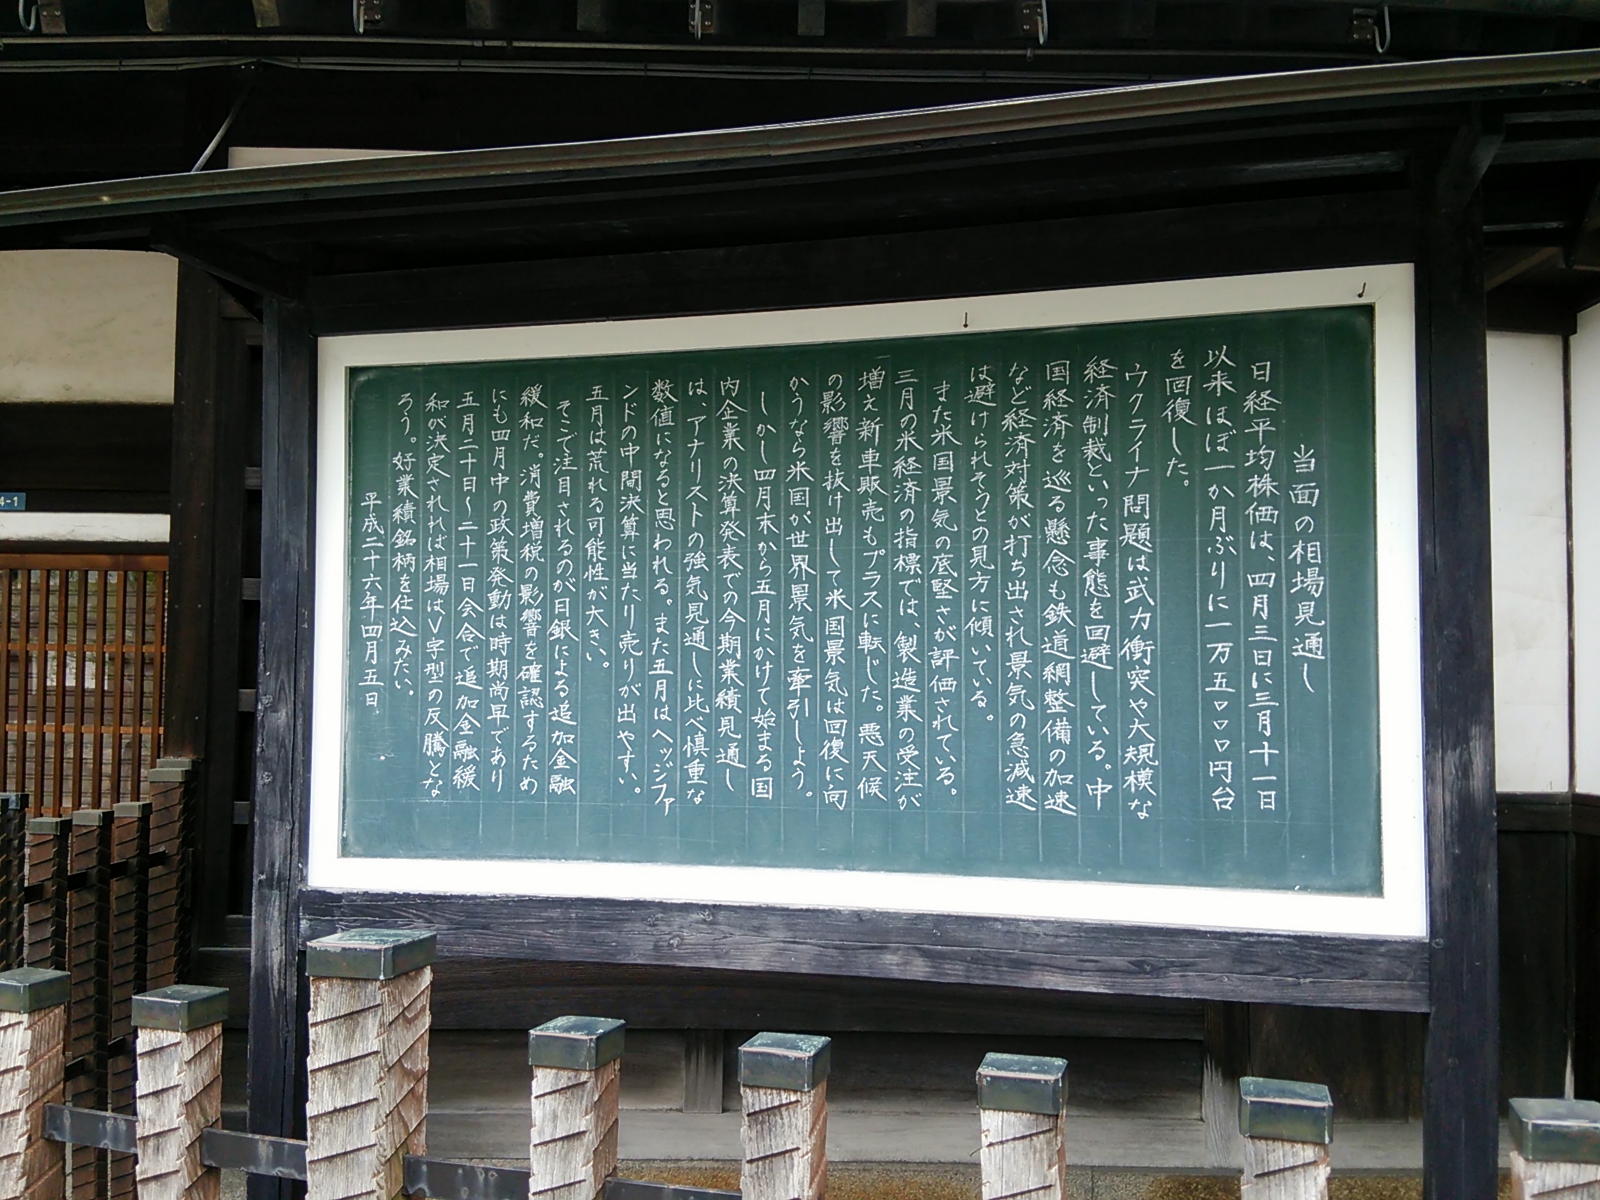 当面の相場見通し
日経平均株価は、四月三日に三月十一日
以来ほぼ一か月ぶりに一万五〇〇〇円台
を回復した。
ウクライナ問題は武力衝突や大規模な
経済制裁といった事態を回避している。中
国経済を巡る懸念も鉄道網整備の加速
など経済対策が打ち出され景気の急減速
は避けられそうとの見方に傾いている。
また米国景気の底堅さが評価されている。
三月の米経済の指標では、製造業の受注が
増え新車販売もプラスに転じた。悪天候
の影響を抜け出して米国景気は回復に向
かうなら米国が世界景気を牽引しよう。
しかし四月末から五月にかけて始まる国
内企業の決算発表での今期業績見通し
は、アナリストの強気見通しに比べ慎重な
数値になると思われる。また五月はヘッジファ
ンドの中間決算に当たり売りが出やすい。
五月は荒れる可能性が大きい。
そこで注目されるのが日銀による追加金融
緩和だ。消費増税の影響を確認するため
にも四月中の政策発動は時期尚早であり
五月二十日～二十一日会合で追加金融緩
和が決定されれば相場はV字型の反騰とな
ろう。好業績銘柄を仕込みたい。
平成二十六年四月五日
4-1